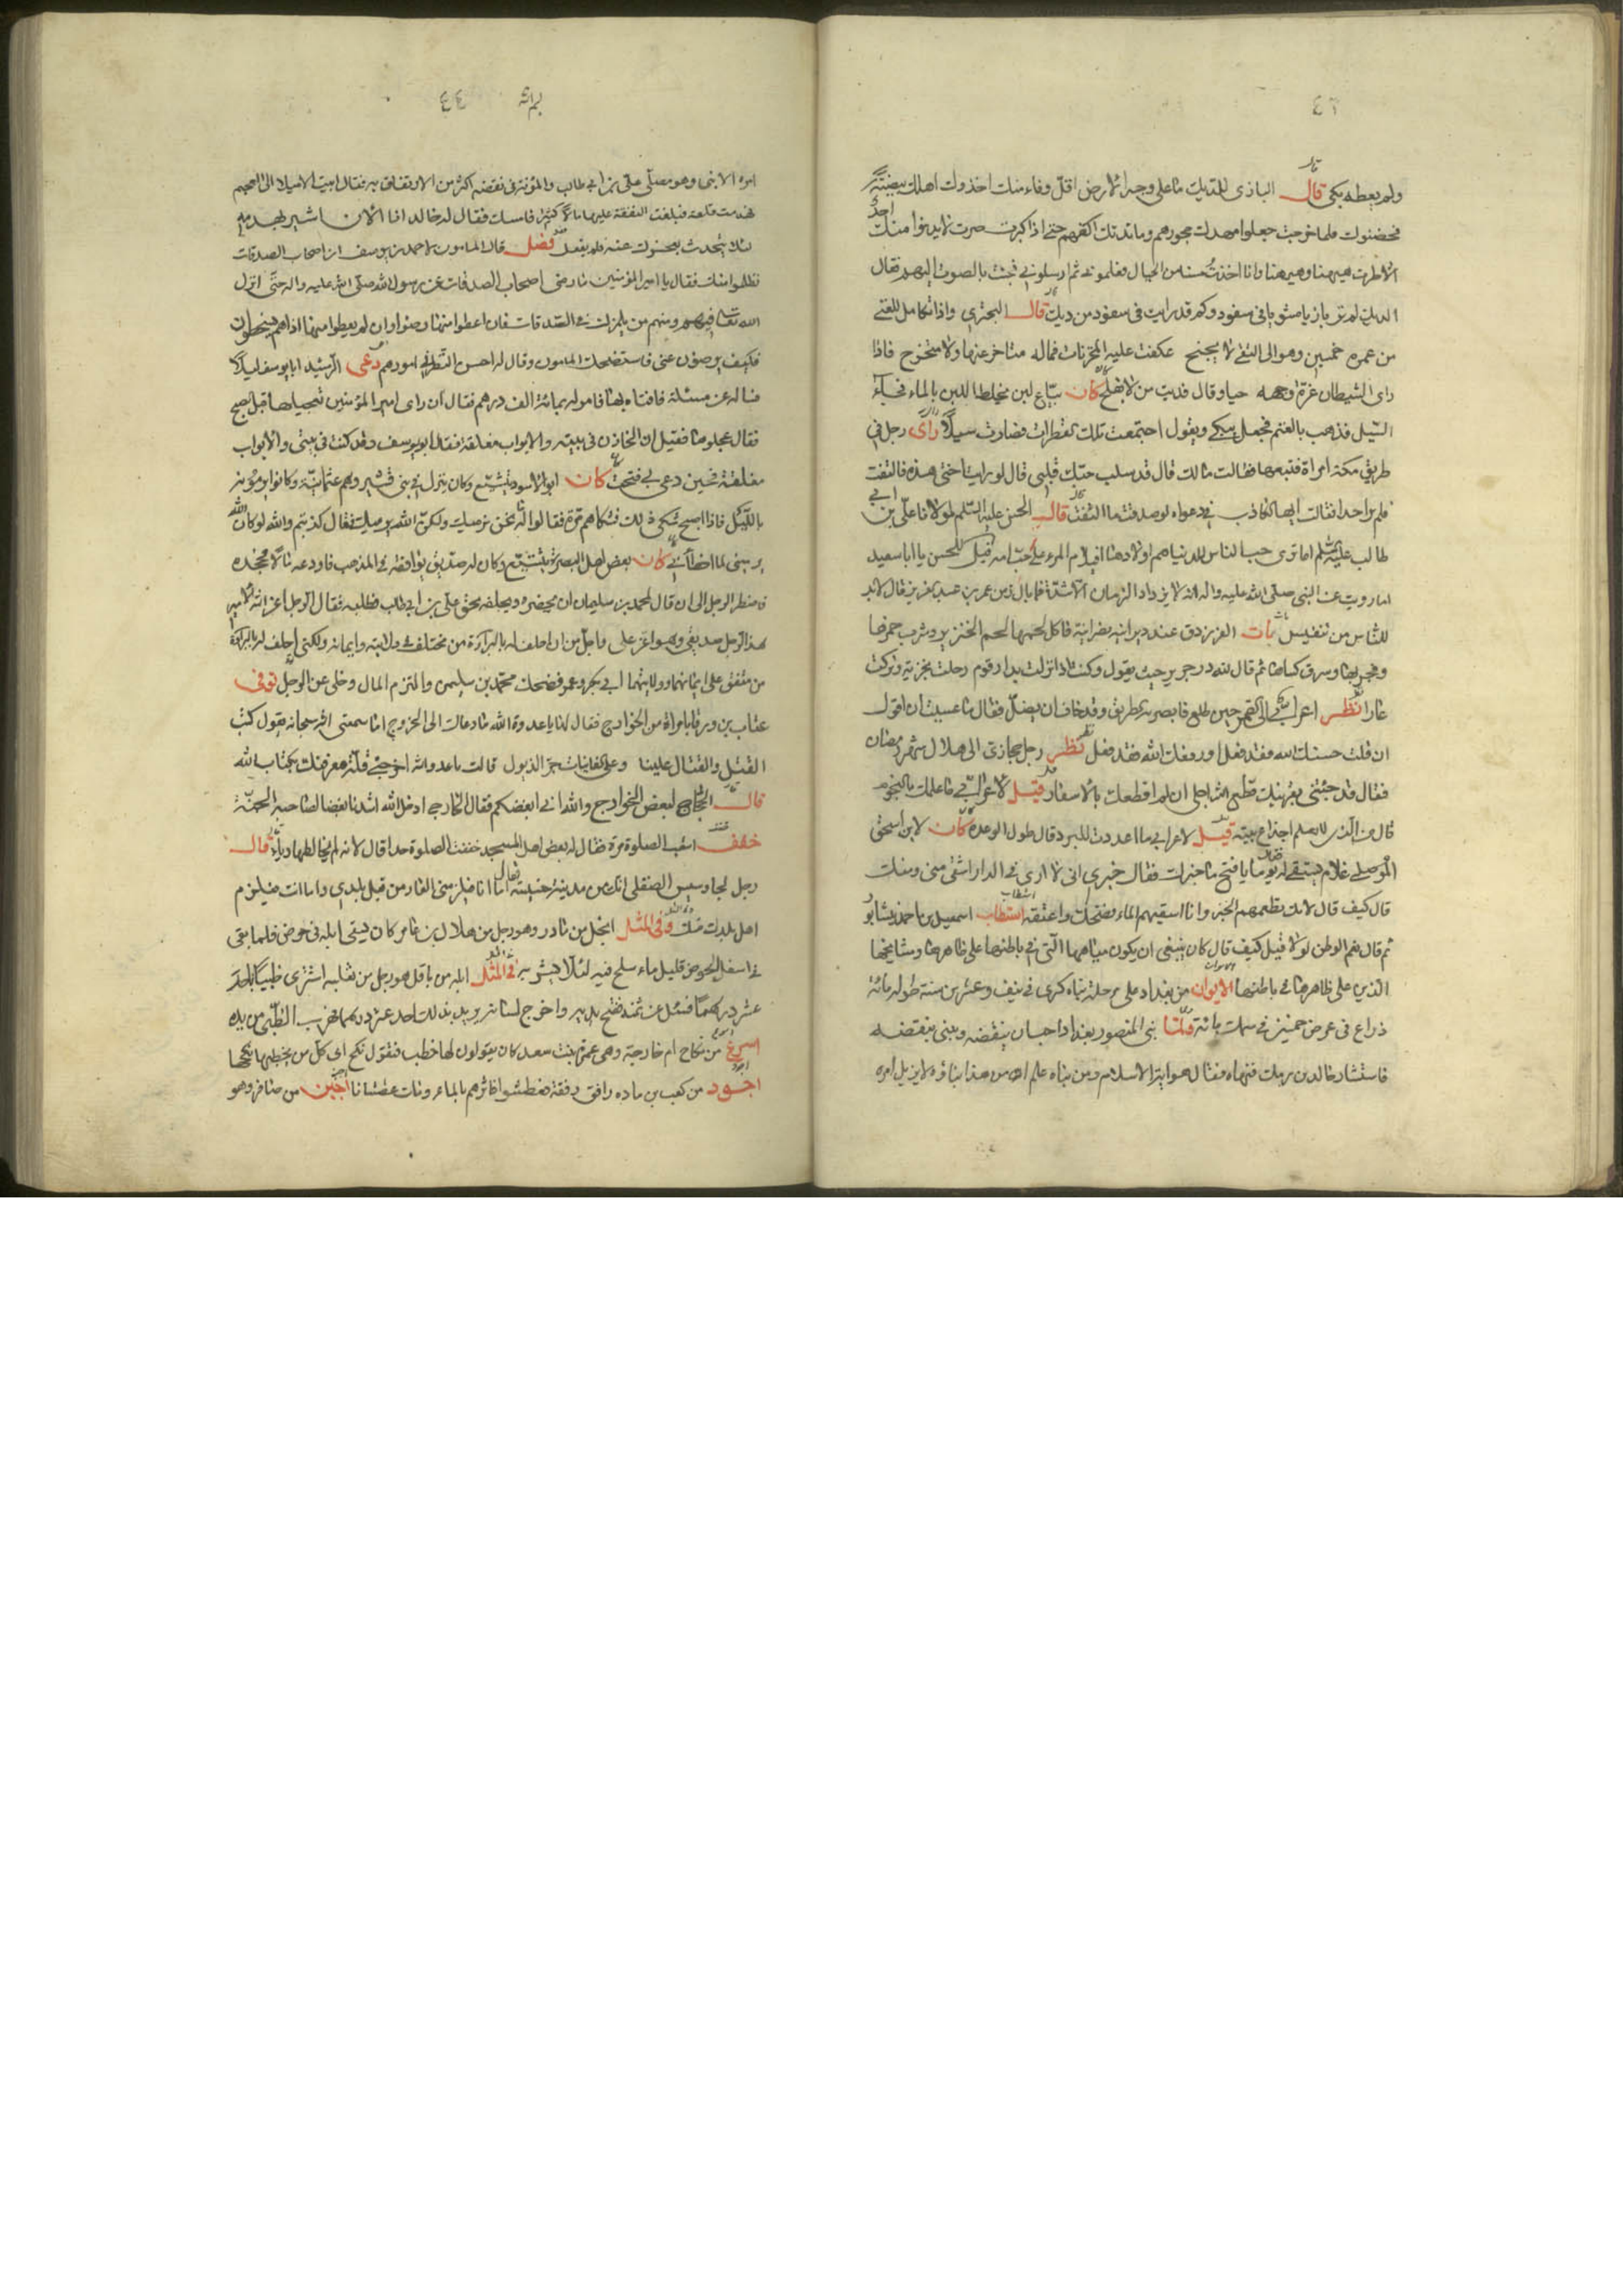 ٤٦
ولم يعطه بكى قال البازى للديك ما على وجه الارض اقل وفاء منك اخذوك اهلك بيضة
فحضنوك فلما خرجت جعلوا مهدك حجورهم ومائدتك اكفهم حتى اذا كبرت صرت لا يدنوا منك احد
الا طرت هيهنا وهيهنا وانا اخذت مسنا من الجبال فعلمونى ثم ارسلونى فجئت بالصوت اليهم فقال
الديك لم تر بازيا مشويا فى سفود وكم قد رايت فى سفود من ديك قال البحترى واذا تكامل للفتى
من عمره خمسين وهو الى التقى لا يجنح عكفت عليه المخزيات فماله متاخر عنها ولا متزحزح فاذا
راى الشيطان غرة وجهه حيا وقال فديت من لا يفلح كان بياع لبن يخلط اللبن بالماء فجاء
السيل فذهب بالغنم فجعل يبكى ويقول اجتمعت تلك القطرات فصارت سيلا راى رجل فى
طريق مكة امراة فتبعها فقالت مالك قال قد سلب حبك قلبى قال لو رايت اختى هذه فالتفت
فلم ير احدا فقالت ايها الكاذب فى دعواه لو صدقت ما التفت قال الحسن عليه السلم لمولانا على بن ابى
طالب عليه السلم اما ترى حب الناس للدنيا هم اولادها افيلام المرء على حب امه قيل للحسن يا ابا سعيد
اما رويت عن النبى صلى الله عليه واله انه لا يزداد الزمان الا شدة فما بال زمن عمر بن عبد العزيز فقال لابد
للناس من تنفيس بات الفرزدق عند ديرانية نصرانية فاكل لحمها لحم الخنزير وشرب خمرها
وفجر بها وسرق كساها ثم قال لله در جرير حيث يقول وكنت اذا نزلت بدار قوم رحلت بخزية وتركت
عارا نظر اعرابى الى القمر حين طلع فابصر به الطريق وقد خاف ان يضل فقال ما عسيت ان اقول
ان قلت حسنك الله فقد فعل او رفعك الله فقد فعل نظر رجل حجازى الى هلال شهر رمضان
فقال قد جئتنى بقرنيك قطع الله اجلى ان لم اقطعك بالاسفار قيل لاعرابى ما علمك بالنجوم
قال من الذى لا يعلم اجذاع بيته قيل لاعرابى ما اعددت للبرد قال طول الرعدة كان لابن اسحق
الموصلى غلام يستقى له يوما يا فتح ما خبرك فقال خبرى انى لا ارى فى الدار اشقى منى ومنك
قال كيف قال لانك تطعمهم الخبز وانا اسقيهم الماء فضحك واعتقه استطاب اسمعيل بن احمد نيشابور
ثم قال نعم الوطن لولا قيل كيف قال كان ينبغى ان يكون مياهها التى فى باطنها على ظاهرها ومشايخها
الذين على ظاهرها فى باطنها الايوان من بغداد على مرحلة بناه كسرى فى نيف وعشرين سنة طوله مائة
ذراع فى عرض خمسين فى سمك مائة فلما بنى المنصور بغداد احب ان ينقضه ويبنى بنقضه
فاستشار خالد بن برمك فنهاه فقال هو اية الاسلام ومن بناه علم ان من هذا بناؤه لا يزيل امره
٤٤
امره الا نبى وهو مصلى على بن ابى طالب والمؤنة فى نقضه اكثر من الارتفاق به فقال ابيت الا ميلا الى العجم
فهدمت قلعة فبلغت النفقة عليها مالا كثيرا فامسك فقال له خالد انا الان اشير بهدمه
لئلا يتحدث بعجزك عنه فلم يفعل فصل قال المامون لاحمد بن يوسف ان اصحاب الصدقات
تظلموا منك فقال يا امير المؤمنين ما رضى اصحاب الصدقات عن رسول الله صلى الله عليه واله حتى انزل
الله تعالى فيهم ومنهم من يلمزك فى الصدقات فان اعطوا منها رضوا وان لم يعطوا منها اذا هم يسخطون
فكيف يرضون عنى فاستضحك المامون وقال له احسن النظر فى امورهم دعى الرشيد ابا يوسف ليلا
فساله عن مسئلة فافتاه بها فامر له بمائة الف درهم فقال ان راى امير المؤمنين تعجيلها قبل الصبح
فقال عجلوها فقيل ان الخازن فى بيته والابواب مغلقة فقال ابو يوسف وقد كنت فى بيتى والابواب
مغلقة فحين دعى بى فتحت كان ابو الاسود يتشيع وكان ينزل فى بنى قشير وهم عثمانية وكانوا يرمونه
بالليل فاذا اصبح شكى ذلك فشكاهم مرة فقالوا له ما نحن نرميك ولكن الله يرميك فقال كذبتم والله لو كان الله
يرمينى لما اخطانى كان بعض اهل البصرة يتشيع وكان له صديق يوافقه فى المذهب فاودعه مالا فجحده
فاضطر الرجل الى ان قال لمحمد بن سليمان ان يحضره ويحلفه بحق على بن ابى طالب فطلبه فقال الرجل اعز الله الامير
هذا الرجل صديقى وهو اعز على واجل من ان احلف له بالبراءة من مختلف فى ولايته وايمانه ولكنى احلف له بالبراءة
من متفق على ايمانهما وولايتهما ابى بكر وعمر فضحك محمد بن سليمن والتزم المال وخلى عن الرجل توفى
عتاب بن ورقا بامراة من الخوارج فقال لها يا عدوة الله ما دعاك الى الخروج اما سمعتى الله سبحانه يقول كتب
القتل والقتال علينا وعلى الغانيات جر الذيول قالت يا عدو الله اخرجنى قلة معرفتك بكتاب الله
قال الحجاج لبعض الخوارج والله انى ابغضكم فقال الخارجى ادخل الله اشدنا بغضا لصاحبه الجنة
خفف اشعب الصلوة مرة فقال له بعض اهل المسجد خففت الصلوة جدا قال لانه لم يخالطها رياء قال
رجل لجاسوس الصقلى انك من مدينة خسيسة فقال اما انا فيلزمنى العار من قبل بلدى واما انت فيلزم
اهل بلدك منك وفى المثل ابخل من مادر وهو رجل من هلال بن عامر كان يسقى ابله فى حوض فلما بقى
فى اسفل الحوض قليل ماء سلح فيه لئلا يشرب به فى المثل ابله من باقل هو رجل من ثعلبه اشترى ظبيا باحد
عشر درهما فسئل عن ثمنه ففتح يديه واخرج لسانه يريد بذلك احد عشر درهما فهرب الظبى من يده
اسرع من نكاح ام خارجة وهى عمرة بنت سعد كان يقولون لها خطب فتقول نكح اى كل من يخطبها ينكحها
اجود من كعب بن مامه رافق رفقة فعطشوا فاثرهم بالماء ومات عطشانا اجبن من صافر وهو